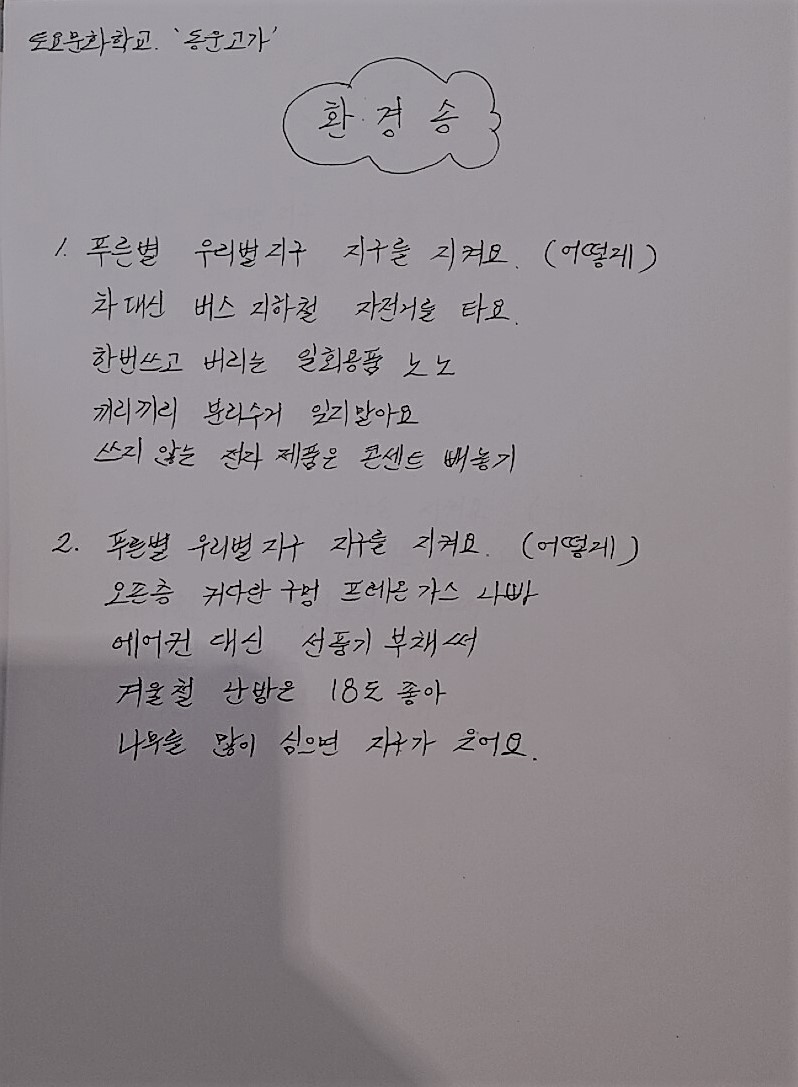 토요문화학교. '동운고가'
환경송
1. 푸른별 우리별 지구 지구를 지켜요. (어떻게)
차 대신 버스 지하철 자전거를 타요.
한번쓰고 버리는 일회용품 노노
끼리끼리 분리수거 잊지말아요
쓰지 않는 전자 제품은 콘센트 빼놓기
2. 푸른별 우리별 지구 지구를 지켜요. (어떻게)
오존층 커다란 구멍 프레온 가스 나빠
에어컨 대신 선풍기 부채써
겨울철 난방은 18도 좋아
나무를 많이 심으면 지구가 웃어요.